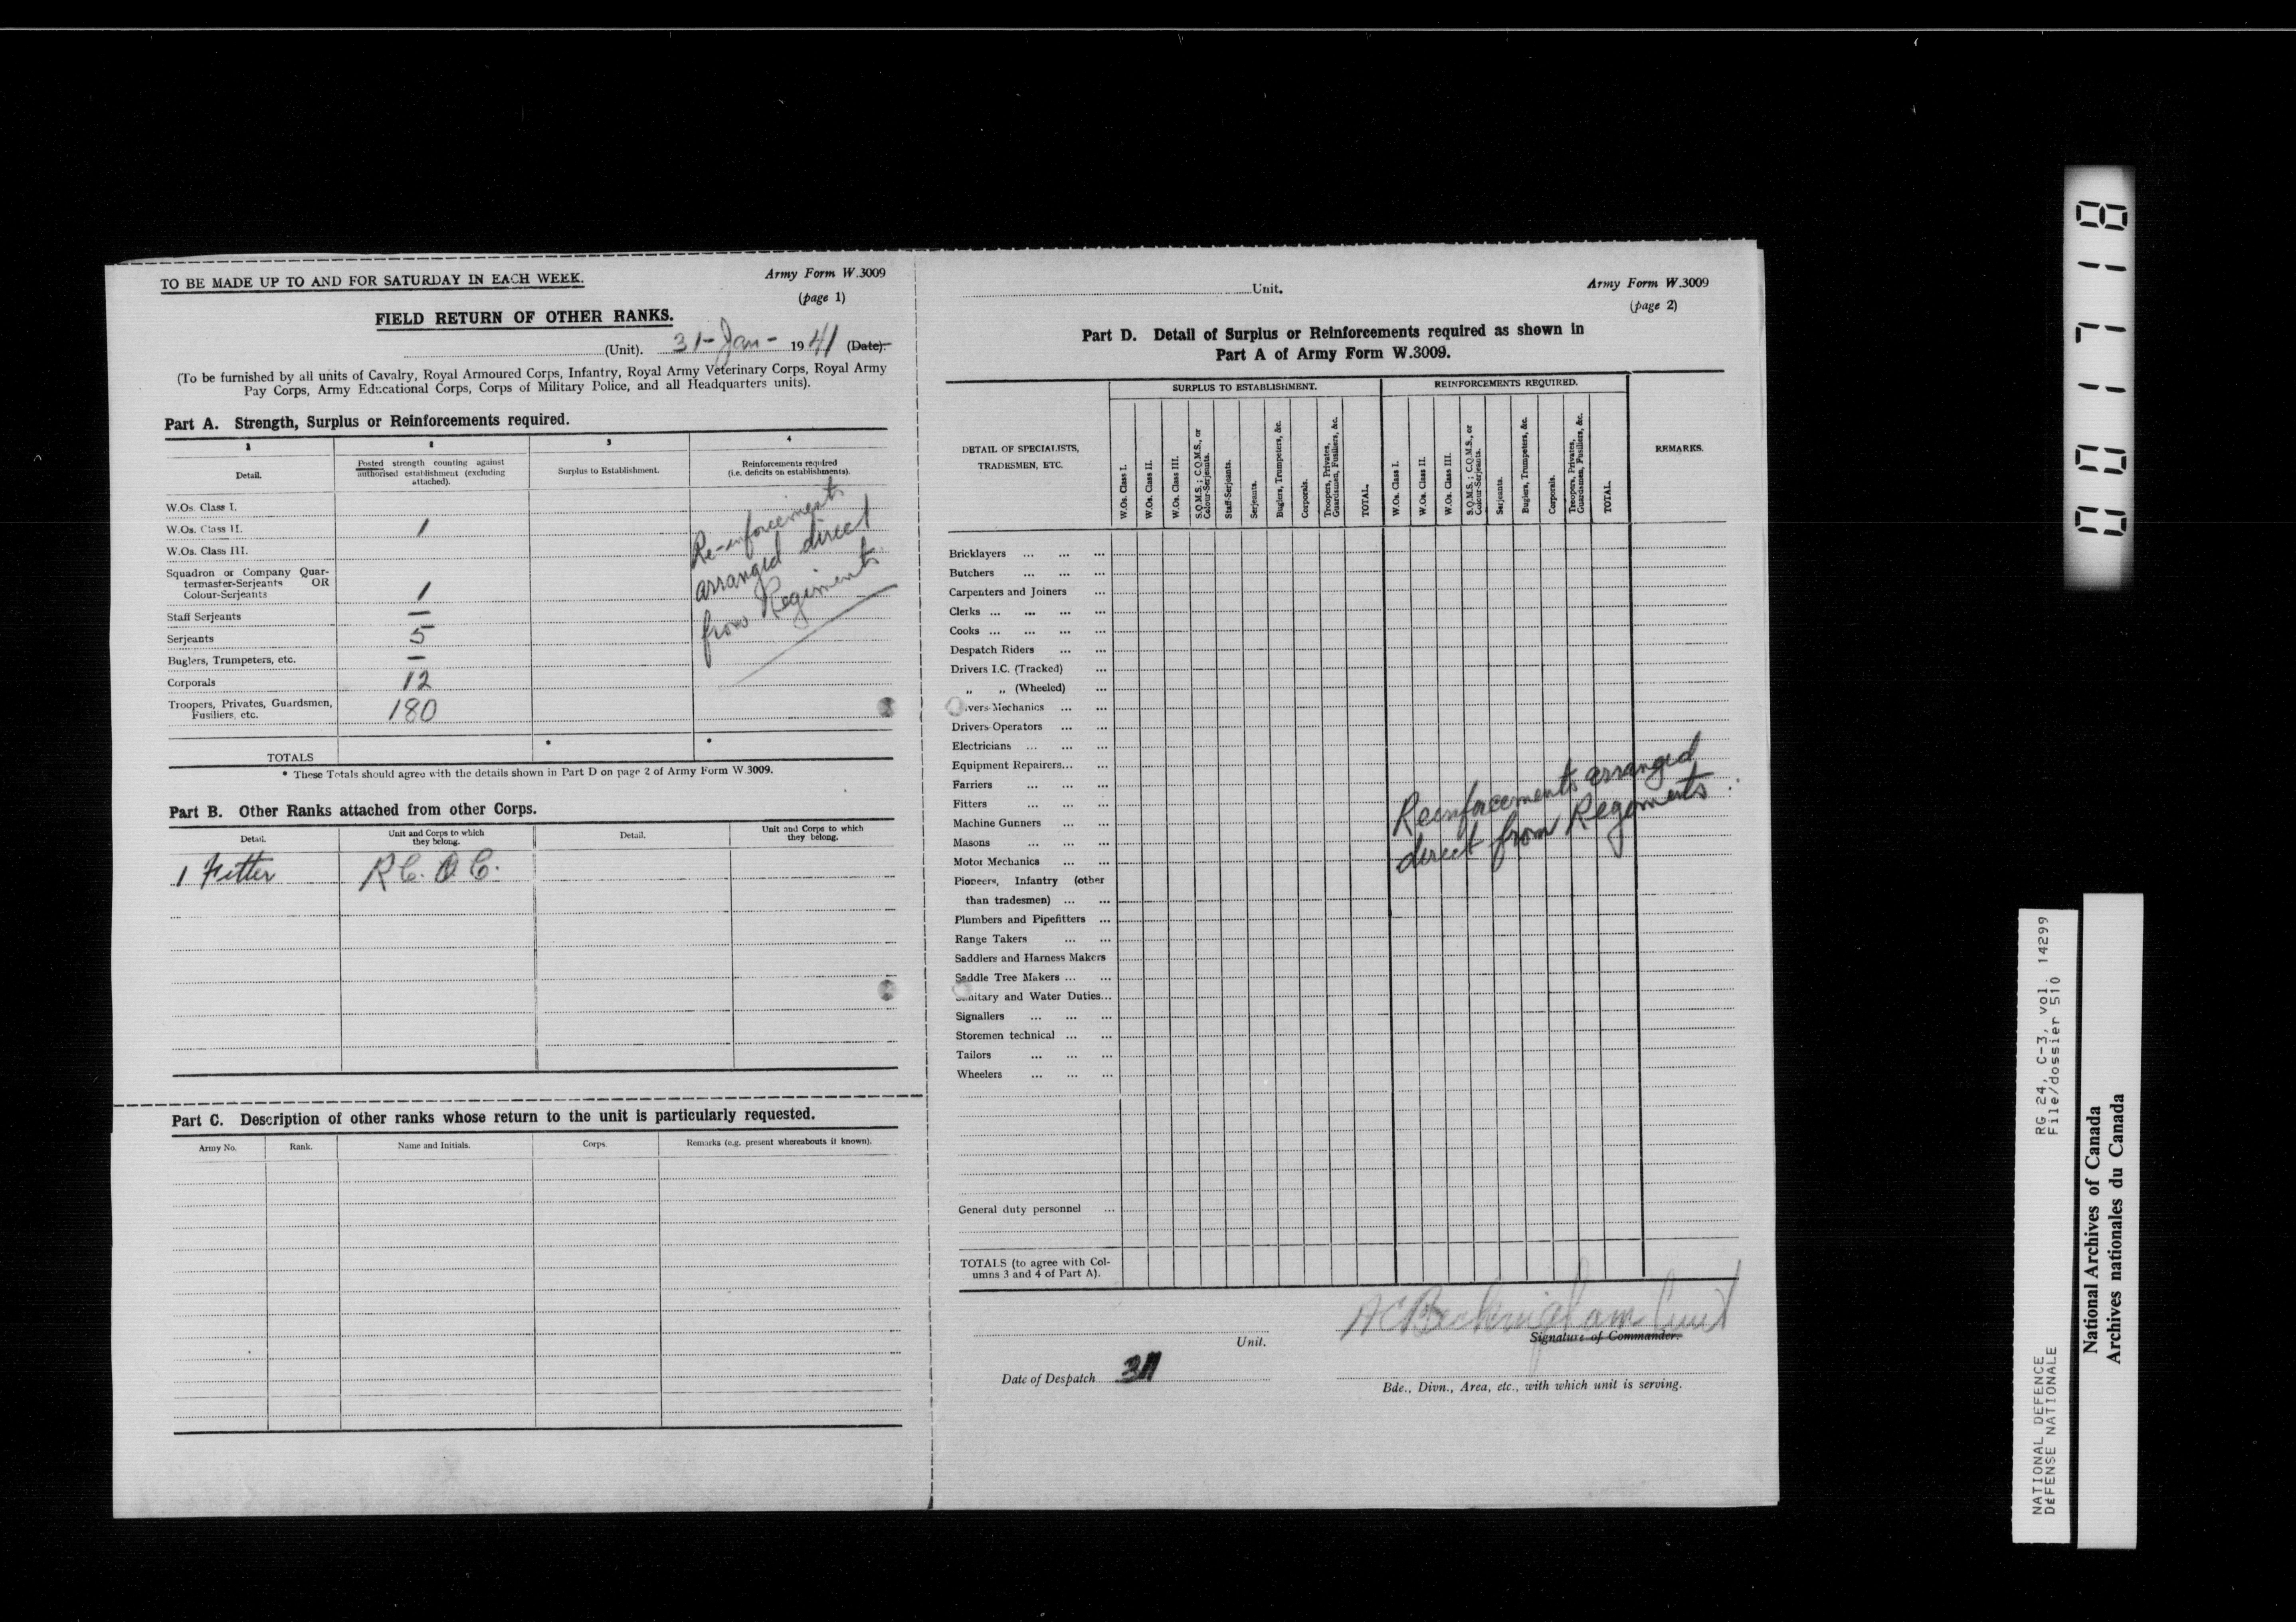 TO BE MADE UP TO AND FOR SATURDAY IN EACH WEEK.
Army Form W.3009
(page 1)
FIELD RETURN OF OTHER RANKS.
(Unit). 31-Jan- 1941 (Date).
(To be furnished by all units of Cavalry, Royal Armoured Corps, Infantry, Royal Army Veterinary Corps, Royal Army
Pay Corps, Army Educational Corps, Corps of Military Police, and all Headquarters units).
Part A. Strength, Surplus or Reinforcements required.
1 2 3 4
Detail.
Posted strength counting against
authorised establishment (excluding
attached).
Surplus to Establishment.
Reinforcements required
(i.e. deficits on establishments).
W.Os. Class I.
W.Os. Class II. 1
W.Os. Class III.
Squadron or Company Quar-
termaster-Serjeants OR
Colour-Serjeants 1
Staff Serjeants —
Serjeants 5
Buglers, Trumpeters, etc. —
Corporals 12
Troopers, Privates, Guardsmen,
Fusiliers, etc. 180
Re-inforcements
arranged direct
from Regiments
TOTALS * *
* These Totals should agree with the details shown in Part D on page 2 of Army Form W.3009.
Part B. Other Ranks attached from other Corps.
Detail.
Unit and Corps to which
they belong.
Detail.
Unit and Corps to which
they belong.
1 Fitter R.C.O.C.
Part C. Description of other ranks whose return to the unit is particularly requested.
Army No. Rank. Name and Initials. Corps. Remarks (e.g. present whereabouts if known).
Unit.
Army Form W.3009
(page 2)
Part D. Detail of Surplus or Reinforcements required as shown in
Part A of Army Form W.3009.
DETAIL OF SPECIALISTS,
TRADESMEN, ETC.
SURPLUS TO ESTABLISHMENT.
W.Os. Class I.
W.Os. Class II.
W.Os. Class III.
S.Q.M.S.; C.Q.M.S., or
Colour-Serjeants.
Staff-Serjeants.
Serjeants.
Buglers, Trumpeters, &c.
Corporals.
Troopers, Privates,
Guardsmen, Fusiliers, &c.
TOTAL.
REINFORCEMENTS REQUIRED.
W.Os. Class I.
W.Os. Class II.
W.Os. Class III.
S.Q.M.S.; C.Q.M.S., or
Colour-Serjeants.
Serjeants.
Buglers, Trumpeters, &c.
Corporals.
Troopers, Privates,
Guardsmen, Fusiliers, &c.
TOTAL.
REMARKS.
Bricklayers ... ... ...
Butchers ... ... ...
Carpenters and Joiners ...
Clerks ... ... ... ...
Cooks ... ... ... ...
Despatch Riders ... ...
Drivers I.C. (Tracked) ...
„ „ (Wheeled) ...
vers-Mechanics ... ...
Drivers-Operators ... ...
Electricians ... ... ...
Equipment Repairers... ...
Farriers ... ... ...
Fitters ... ... ...
Machine Gunners ... ...
Masons ... ... ...
Motor Mechanics ... ...
Pioneers, Infantry (other
than tradesmen) ... ...
Plumbers and Pipefitters ...
Range Takers ... ...
Saddlers and Harness Makers
Saddle Tree Makers ... ...
nitary and Water Duties...
Signallers ... ... ...
Storemen technical ... ...
Tailors ... ... ...
Wheelers ... ... ...
Reinforcements arranged
direct from Regiments.
General duty personnel ...
TOTALS (to agree with Col-
umns 3 and 4 of Part A).
Unit.
Signature of Commander.
Date of Despatch
Bde., Divn., Area, etc., with which unit is serving.
0001718
RG 24, C-3, vol. 14299
File/dossier 510
NATIONAL DEFENCE
DÉFENSE NATIONALE
National Archives of Canada
Archives nationales du Canada